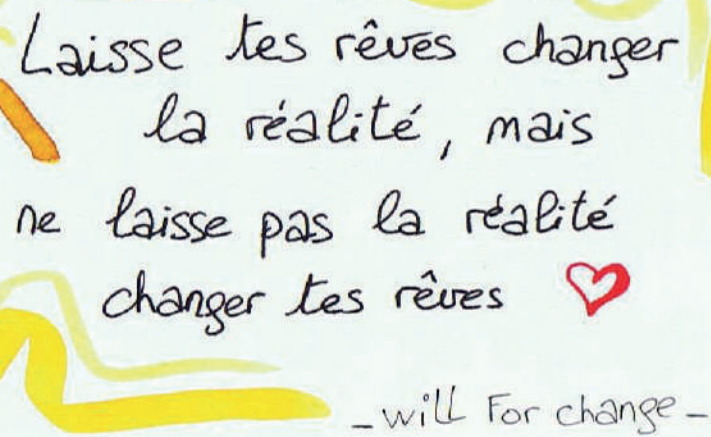 Laisse tes rêves changer
la réalité, mais
ne laisse pas la réalité
changer tes rêves
- will For change -